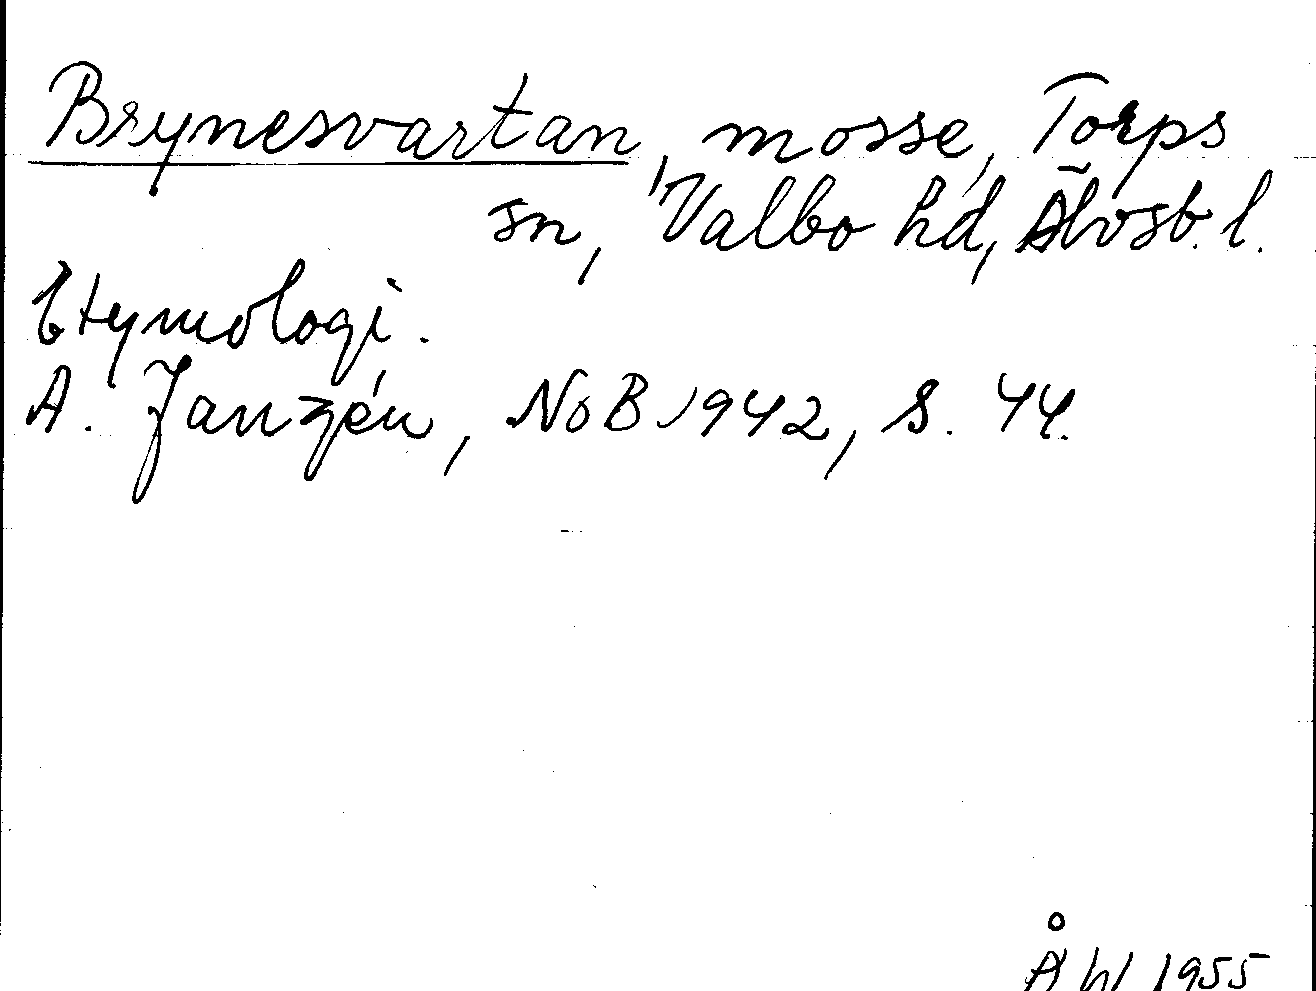 Brynesvartan, mosse, Torps
sn, Valbo hd, Älvsb. l.
Etymologi.
A. Janzén, NoB 1942, s. 44.
Åhl 1955